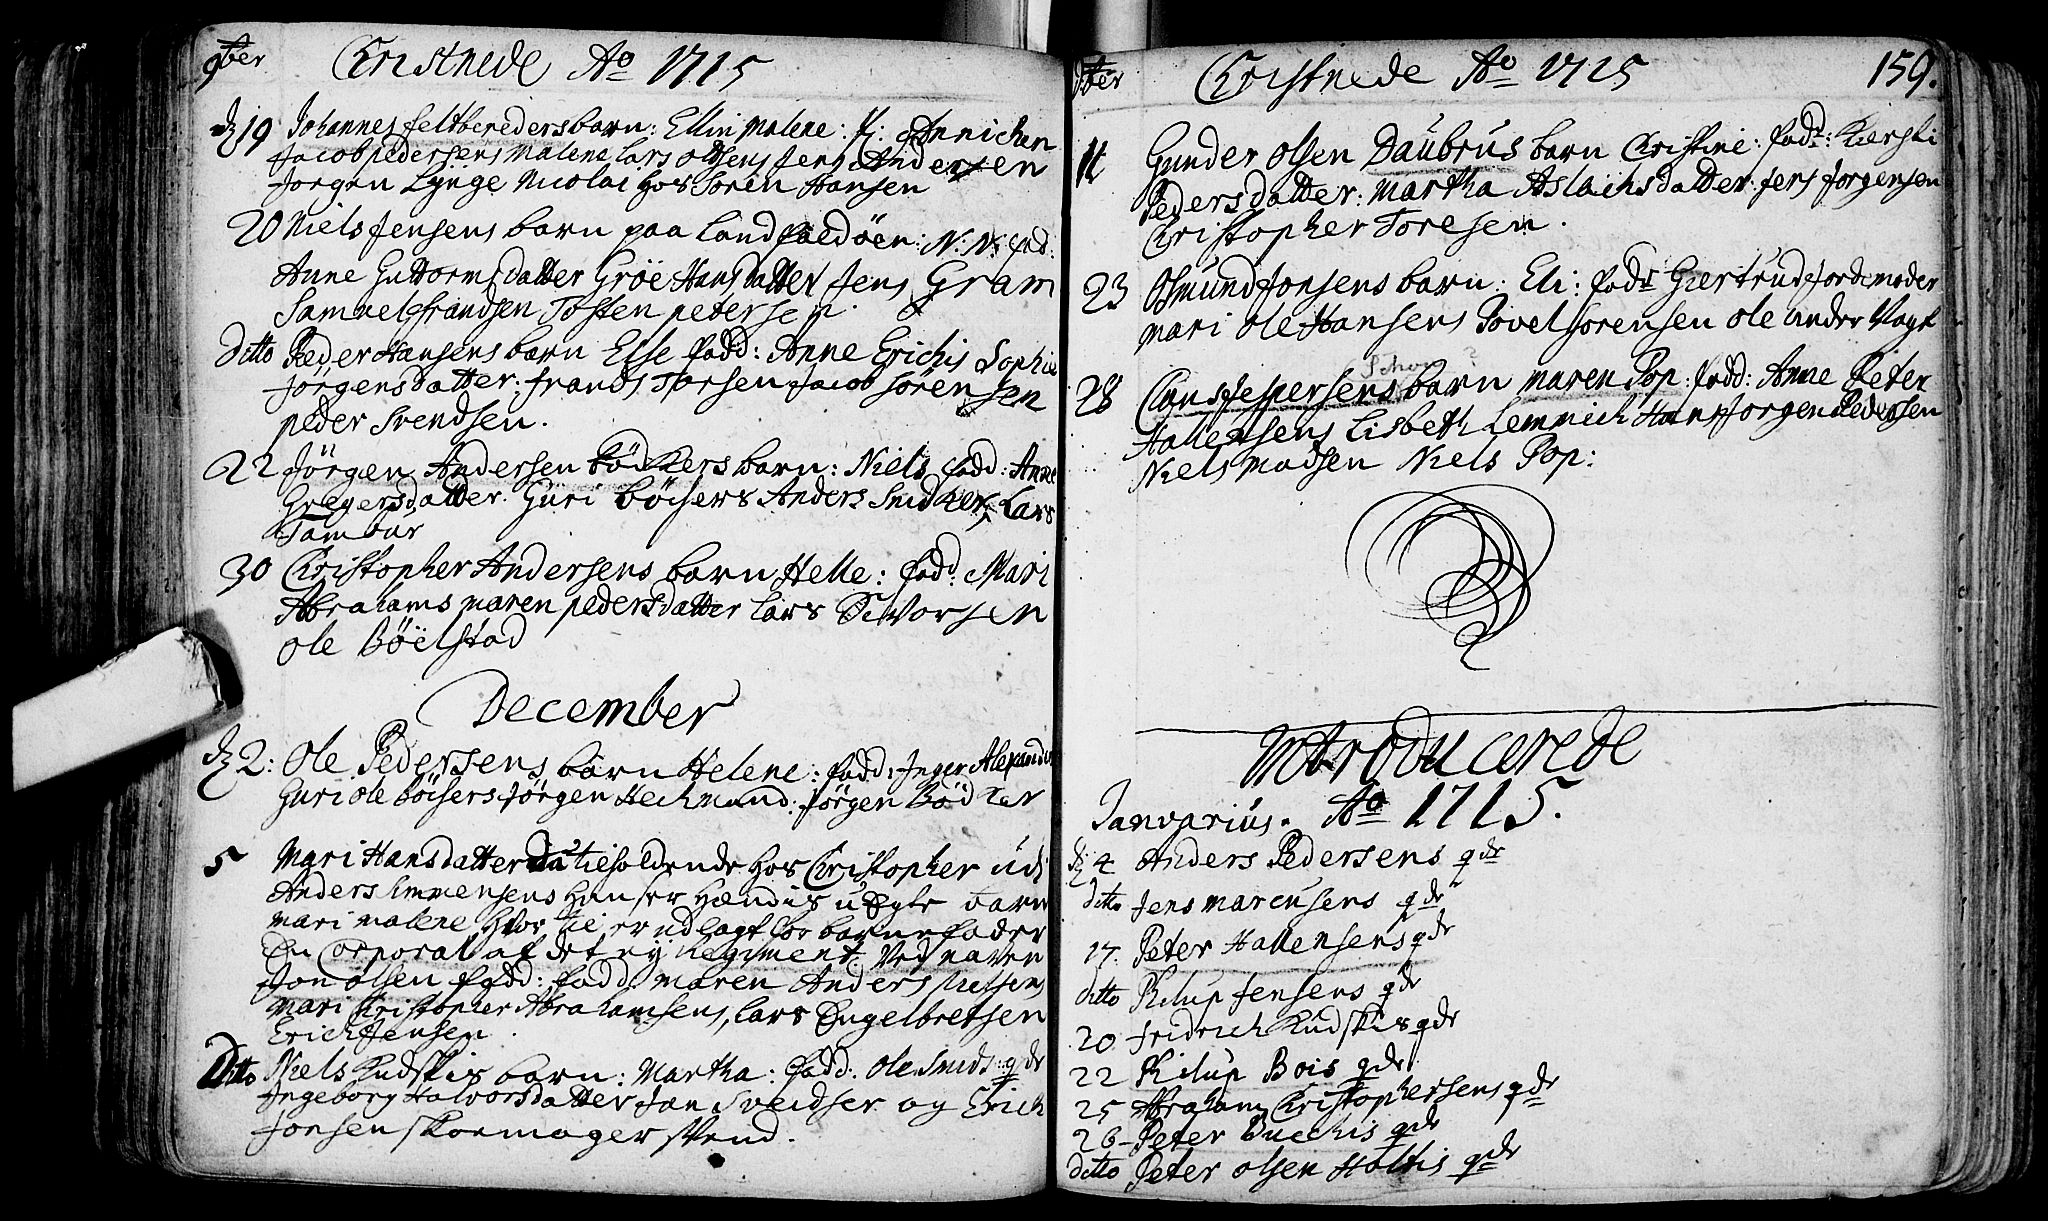 9ber Christnede Ao 1715
d 19 Johannes feltberedersbarn: Ellin Malene: f: Annichen
Jacob pedersens Malene Lars Olsens Jens Andersen
Jorgen Lynge Nicolai hos Soren Hansen
20 Niels Jensens barn paa Landfaldöen: N: N: fad:
Anne Guttormsdatter Gröe Hansdatter Jens Gram
Samuel frandsen Tosten petersen.
ditto Peder Hansens barn Else fadd: Anne Erichis Sophie
Jörgensdatter: frands Jacob Sörensen
peder Svendsen.
22 Jörgen Andersen Bödkers barn: Niels fadd: Anne
Gregersdatter Guri böisers Anders Snidker, Lars
Tambur
30 Christopher Andersens barn Helle: fadd: Mari
Abrahams maren pedersdatter Lars Sivorsen
Ole Böelstad
December
d 2: Ole Pedersens barn Helene: fadd: Inger Alexanders
Guri Ole böisers Jörgen Heckmand: Jörgen Bödker
5 Mari Hansdatter tieholdende hos Christopher udi
Anders Hun er Hændis uægte barn
mari malene, hvor til er udlagt for barnefader
En Corporal af det ny Regiment Ved naven
Jon Olsen fadd: fadd maren Anders
mari Christopher Abrahamsens, Lars Engelbretsen
Erich Jensen.
Ditto Niels Kudskis barn: Martha: fadd. Ole Smids qdr
Ingeborg Halvorsdatter Jan Sveidser og Erich
Jonsen skoemager svend.
Xber Christnede Ao 1715 159.
11 Gunder Olsen Daubrus barn Christine: fadd: Kiersti
Pedersdatter: Martha Aslachsdatter: Jens Jorgensen
Christopher Toresen.
23 Osmund Jonsens barn: Eli: fadr Giertrud Jordemoder
mari Ole Hansens Povel Sorensen Ole under Vagt
28 Claus Jespersens barn maren Pop: fadd: Anne Peter
Hallensens Lisbeth Lemmich Hans Jorgen Pedersen
Niels Madsen Niels Pop:
Introducerede
Januarius. Ao 1715.
d 4 Anders Pedersens qdr
ditto Jens marcusens qdr
17. Peter Hallensens qdr
ditto Philup Jensens qdr
20 fridrich Kudskis qdr
22 Philup Bois qdr
25 Abraham Christophersens qdr
26 - Peter Buechis qdr
ditto Peter Olsen Holtis qdr